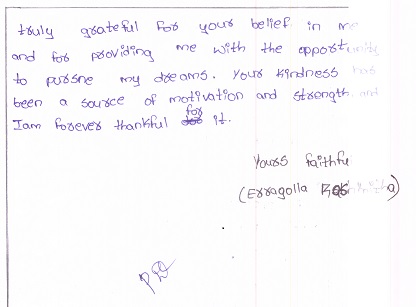 truly grateful for your belief in me
and for providing me with the opportunity
to pursne my dreams. Your kindness has
been a source of motivation and strength and
I am forever thankful for it.
Yours faithfu
(Erragolla